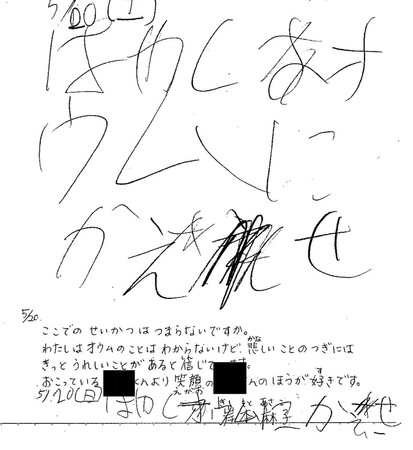 5/20(土)
はやくあす
ウムに
かえせ
5/20.
ここでの せいかつ は つまらないですか。
わたしは オウムのことは わからないけど、悲しいことのつぎには
かな
きっと うれしいことが あると 信じて ます。
おこっている くんより 笑顔の んのほうが 好きです。
えがお
す
5/20(日) はやく に かせ